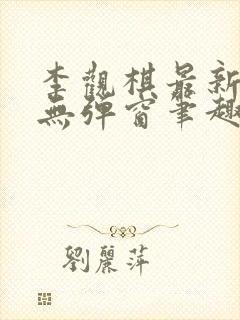 李觀棋最新
無彈窗筆趣
劉麗萍